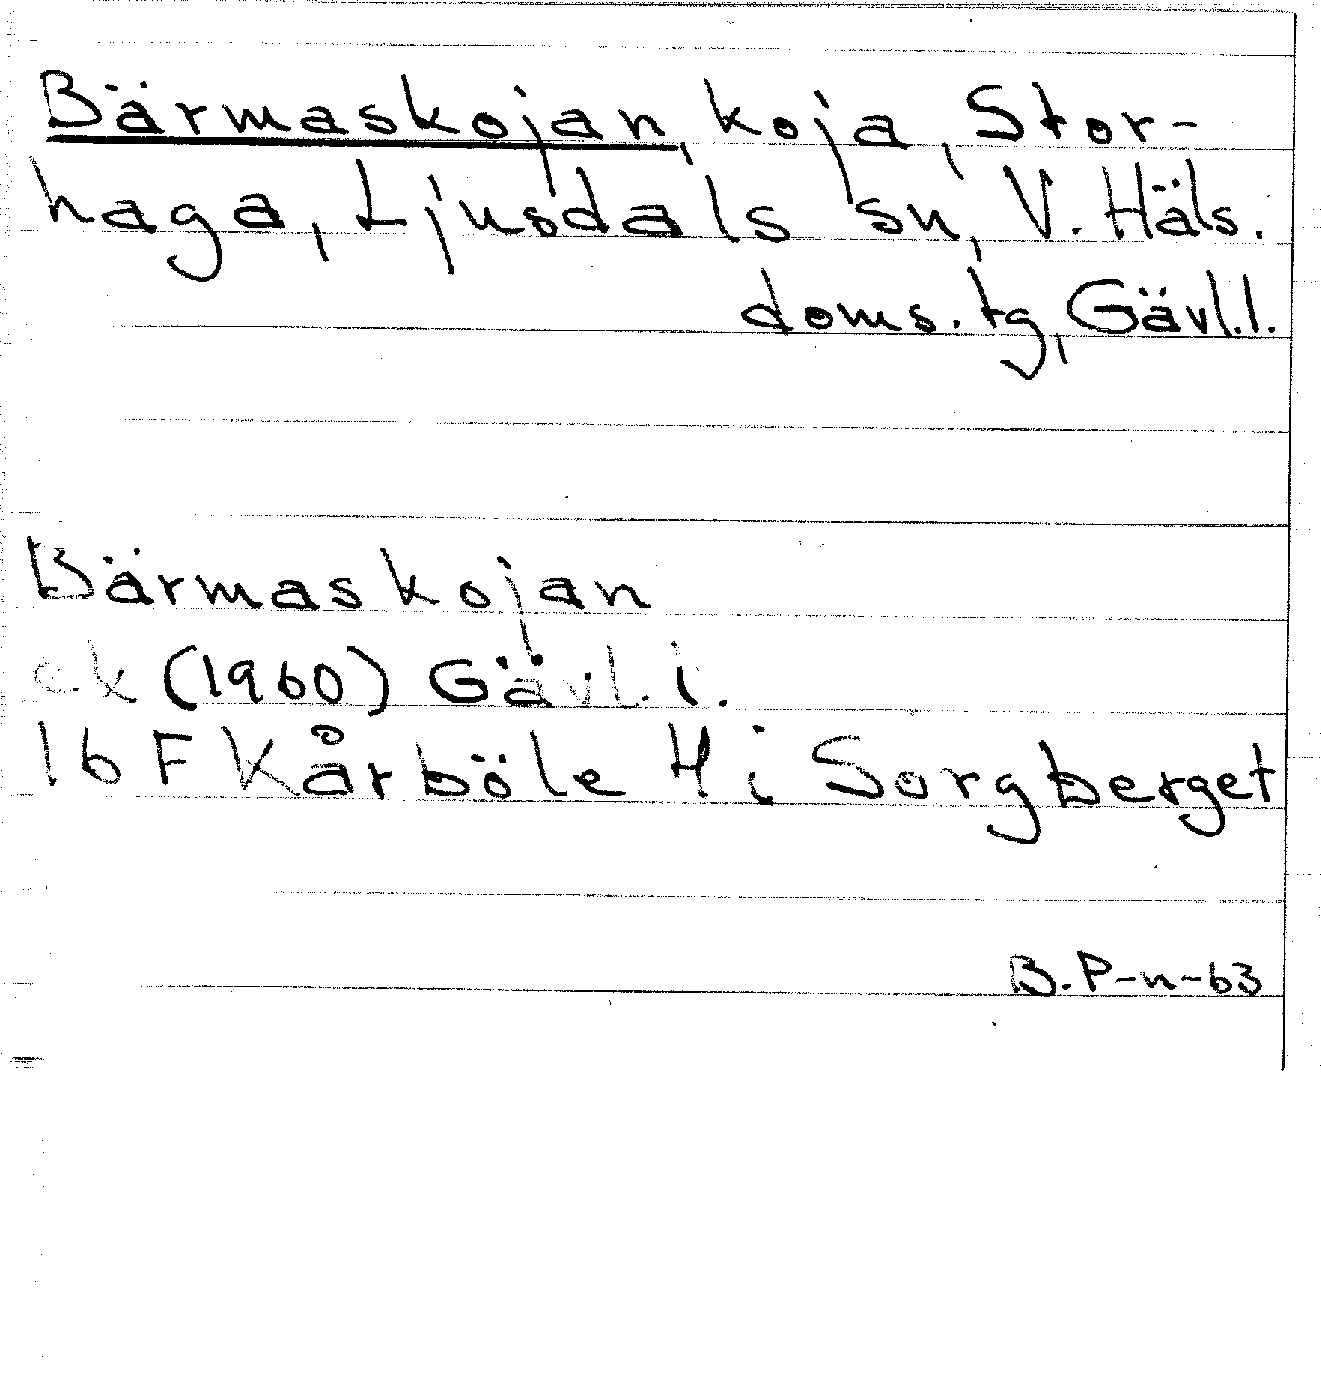 Bärmaskojan, koja, Stor-
haga, Ljusdals sn, V. Häls.
doms. tg, Gävl.l.
Bärmaskojan
ek (1960) Gävl. l.
16 F Kårböle 4 i Sorgberget
B.P-n-63